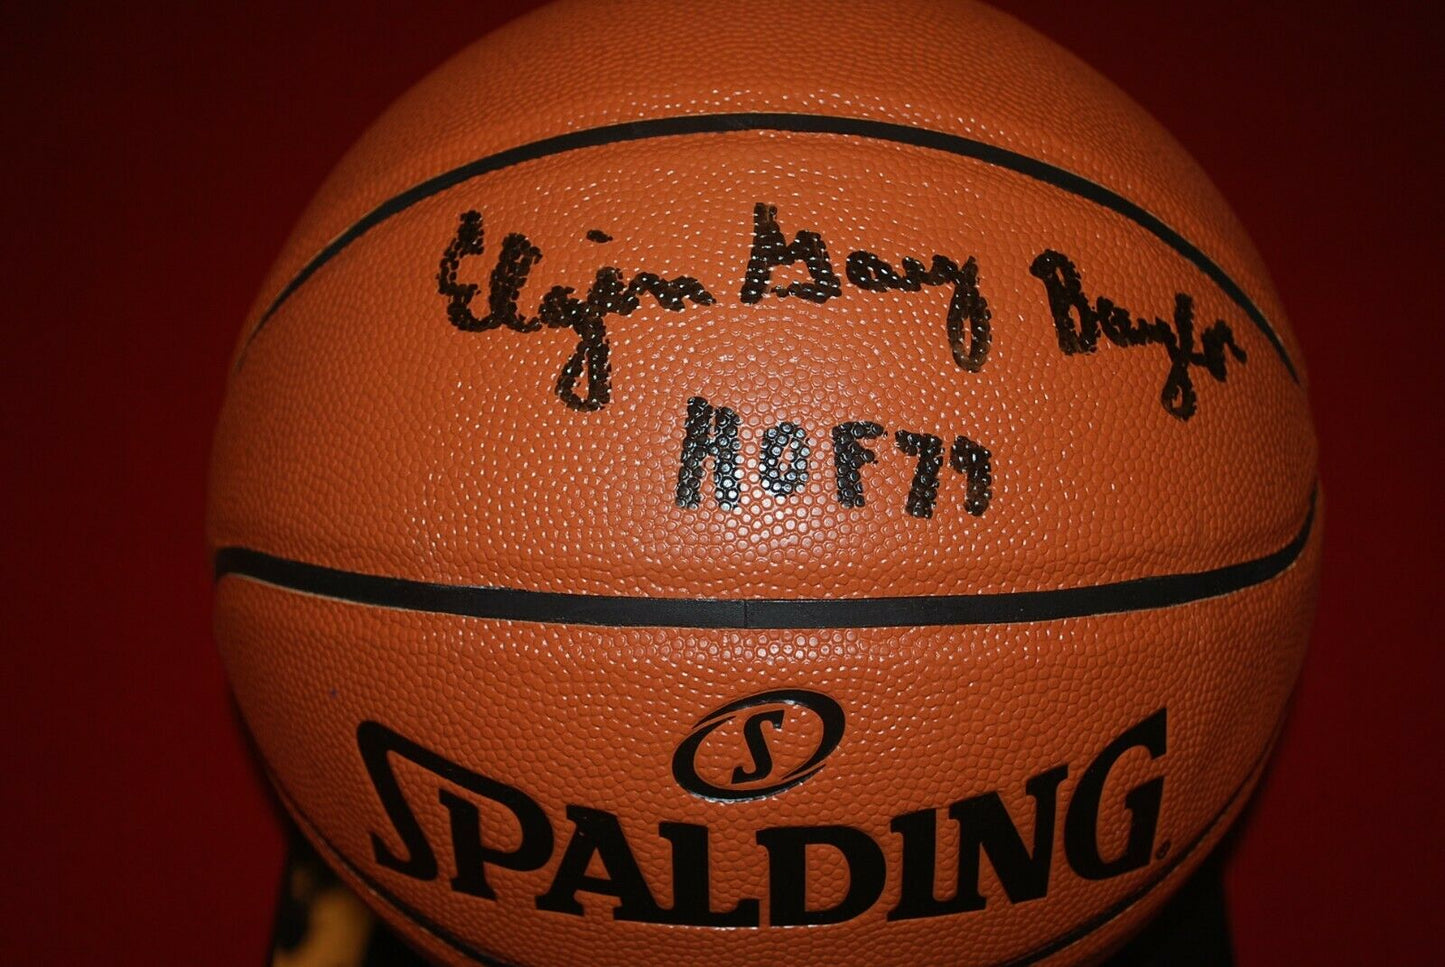 Elgin Gary Baylor
HOF 77
S
SPALDING®